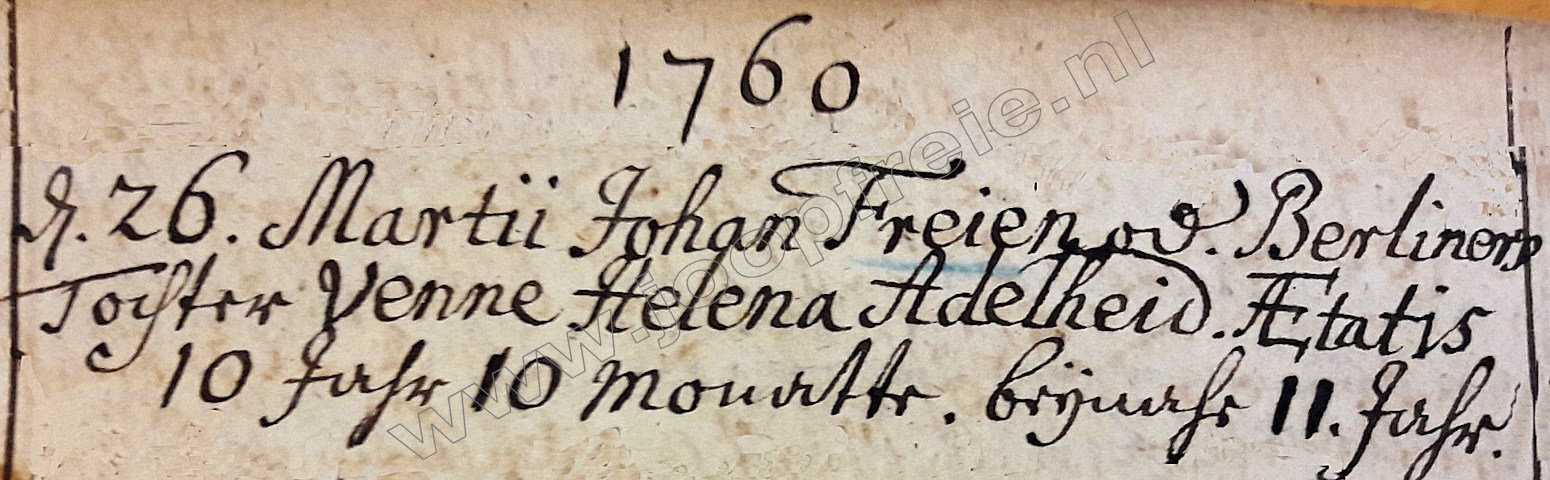 1760
d. 26. Martii Johan Freien od. Berliners
Tochter Venne Helena Adelheid. Ætatis
10 Jahr 10 Monatte. beÿnahe 11. Jahr.
www.joopfreie.nl